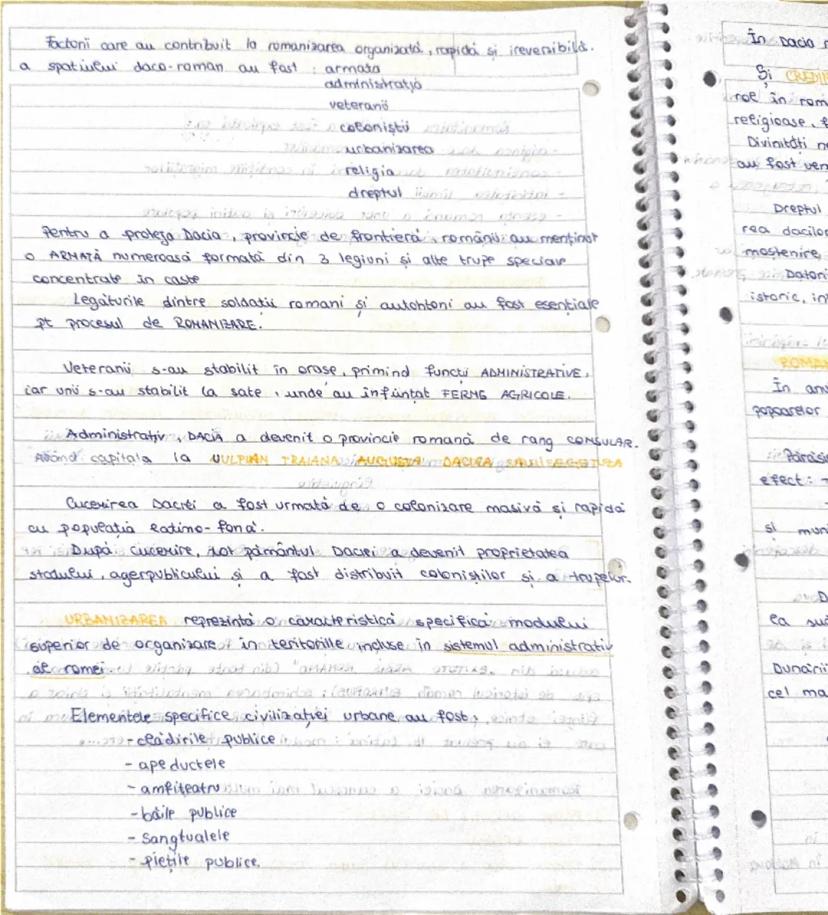 Factorii care au contribuit la romanizarea organizată, rapidă și ireversibilă.
a spațiului daco-roman au fost : armata
administrația
veteranii
coloniștii
urbanizarea
religia
dreptul
Pentru a proteja Dacia, provincie de frontieră, românii au menținut
o ARMATĂ numeroasă formată din 3 legiuni și alte trupe speciale
concentrate în caste
Legăturile dintre soldații romani și autohtoni au fost esențiale
pt procesul de ROMANIZARE.
Veteranii s-au stabilit în orașe, primind funcții ADMINISTRATIVE,
iar unii s-au stabilit la sate, unde au înființat FERME AGRICOLE.
Administrativ, DACIA a devenit o provincie romană de rang CONSULAR.
Având capitala la VULPIAN TRAIANA AUGUSTA DACICA
Cucerirea Daciei a fost urmată de o colonizare masivă și rapidă
cu populația latino-fonă.
După cucerire, tot pământul Daciei a devenit proprietatea
statului, agerpublicului și a fost distribuit coloniștilor și a trupelor.
URBANIZAREA reprezintă o caracteristică specifică modului
superior de organizare în teritoriile incluse în sistemul administrativ
al romei
Elementele specifice civilizației urbane au fost:
- clădirile publice
- apeductele
- amfiteatru
- băile publice
- Sangtualele
- piețile publice.
În Dacia
Și
rol în rom
religioase,
Divinități
au fost ven
Dreptul
rea dacilor
moștenire,
Datori
istoric, in
ROMAN
În anu
popoarelor
Părăsi
efect:
și mun
D
ea su
Dunării
cel ma